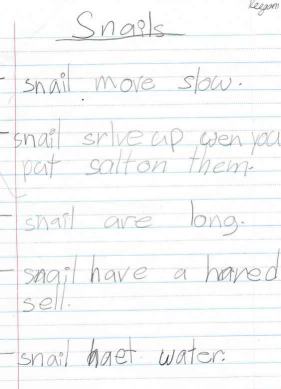 Keegan
Snails
- snail move slow.
- snail srlve up wen you
pat salt on them.
- snail are long.
- snail have a hared
sell.
- snail haet water.